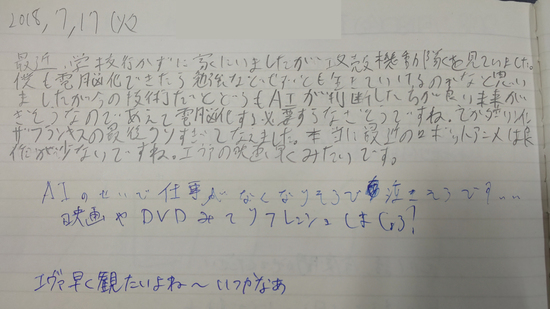 2018,7,17(火)
最近、学校行かずに家にいましたが、攻殻機動隊を見ていました。
僕も電脳化できたら勉強などせずとも生きていけるのかなと思い
ましたが今の技術だとどうもAIが判断した方が良い未来が
きそうなのであえて電脳化する必要すらなさそうですね。てかダリイン
ザフランキスの最後クソすぎてなえました。本当に最近のロボットアニメは良
作が少ないですね。エヴァの映画早くみたいです。
AIのせいで仕事がなくなりそうで泣きそうです…
映画やDVDみてリフレッシュしましょう?
エヴァ早く観たいよね〜いつかなあ